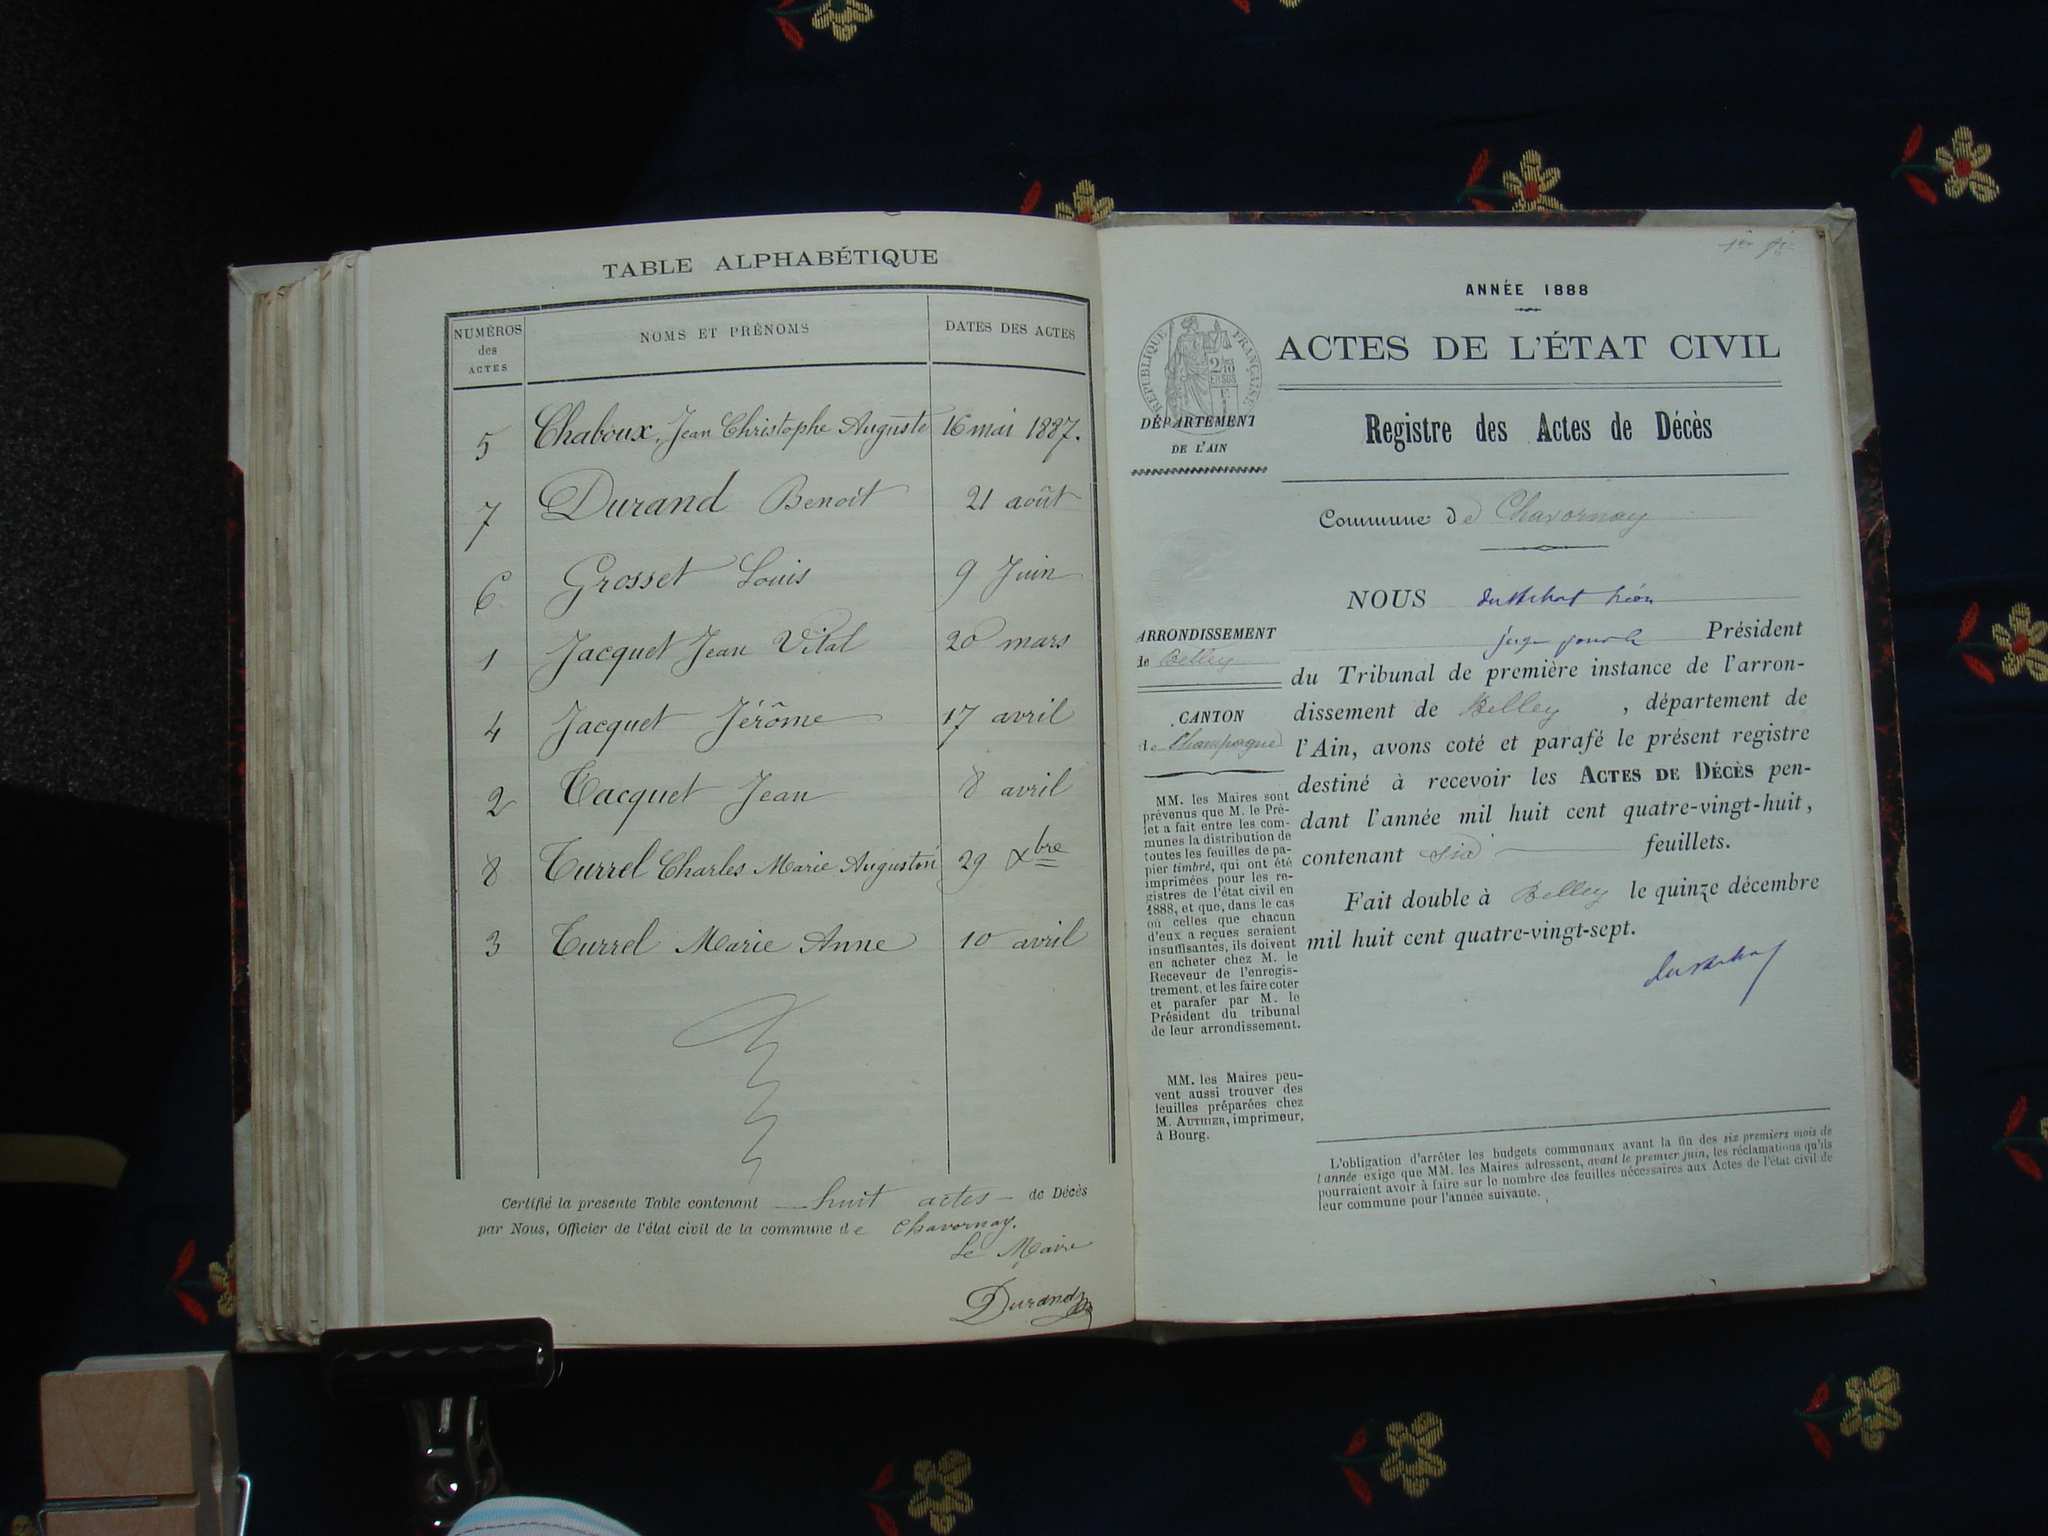 TABLE ALPHABÉTIQUE
NUMÉROS des ACTES NOMS ET PRÉNOMS DATES DES ACTES
5 Chaboux, Jean Christophe Auguste 16 mai 1887.
7 Durand Benoit 21 août
6 Grosset Louis 9 Juin
1 Jacquet Jean Vital 20 mars
4 Jacquet Jérôme 17 avril
2 Tacquet Jean 8 avril
8 Turrel Charles Marie Augustin 29 Xbre
3 Turrel Marie Anne 10 avril
Certifié la presente Table contenant huit actes de Décès
par Nous, Officier de l'état civil de la commune de Chavornay.
Le Maire
Durand
ANNÉE 1888
ACTES DE L'ÉTAT CIVIL
RÉPUBLIQUE FRANÇAISE
2/10 EN SUS
DÉPARTEMENT
DE L'AIN
Registre des Actes de Décès
Commune de Chavornay
ARRONDISSEMENT
de Belley
CANTON
de Champagne
MM. les Maires sont
prévenus que M. le Pré-
fet a fait entre les com-
munes la distribution de
toutes les feuilles de pa-
pier timbré, qui ont été
imprimées pour les re-
gistres de l'état civil en
1888, et que, dans le cas
où celles que chacun
d'eux a reçues seraient
insuffisantes, ils doivent
en acheter chez M. le
Receveur de l'enregis-
trement, et les faire coter
et parafer par M. le
Président du tribunal
de leur arrondissement.
MM. les Maires peu-
vent aussi trouver des
feuilles préparées chez
M. AUTHIER, imprimeur,
à Bourg.
NOUS
Président
du Tribunal de première instance de l'arron-
dissement de Belley, département de
l'Ain, avons coté et parafé le présent registre
destiné à recevoir les ACTES DE DÉCÈS pen-
dant l'année mil huit cent quatre-vingt-huit,
contenant six feuillets.
Fait double à Belley le quinze décembre
mil huit cent quatre-vingt-sept.
L'obligation d'arrêter les budgets communaux avant la fin des six premiers mois de
l'année exige que MM. les Maires adressent, avant le premier juin, les réclamations qu'ils
pourraient avoir à faire sur le nombre des feuilles nécessaires aux Actes de l'état civil de
leur commune pour l'année suivante.